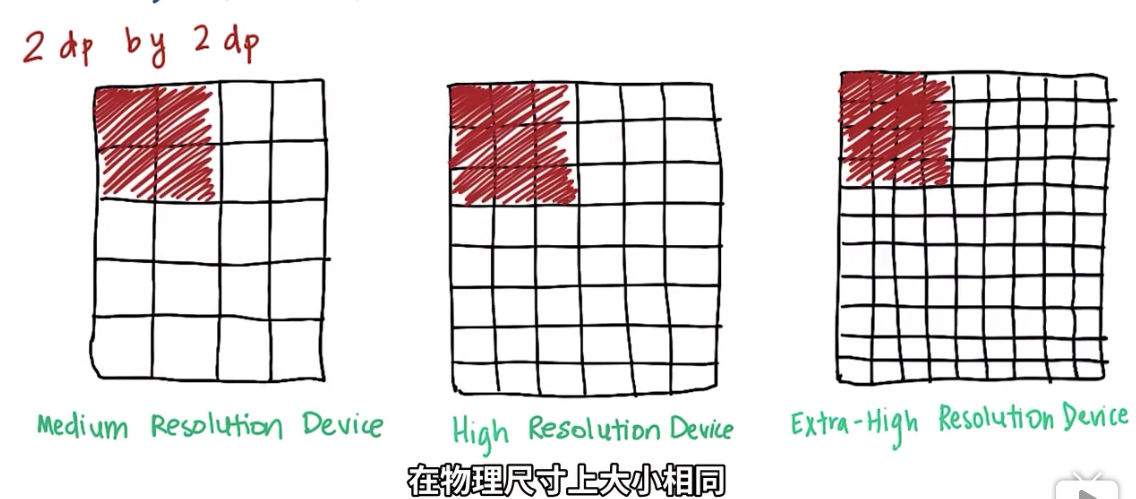 2 dp by 2 dp
Medium Resolution Device
High Resolution Device
Extra-High Resolution Device
在物理尺寸上大小相同